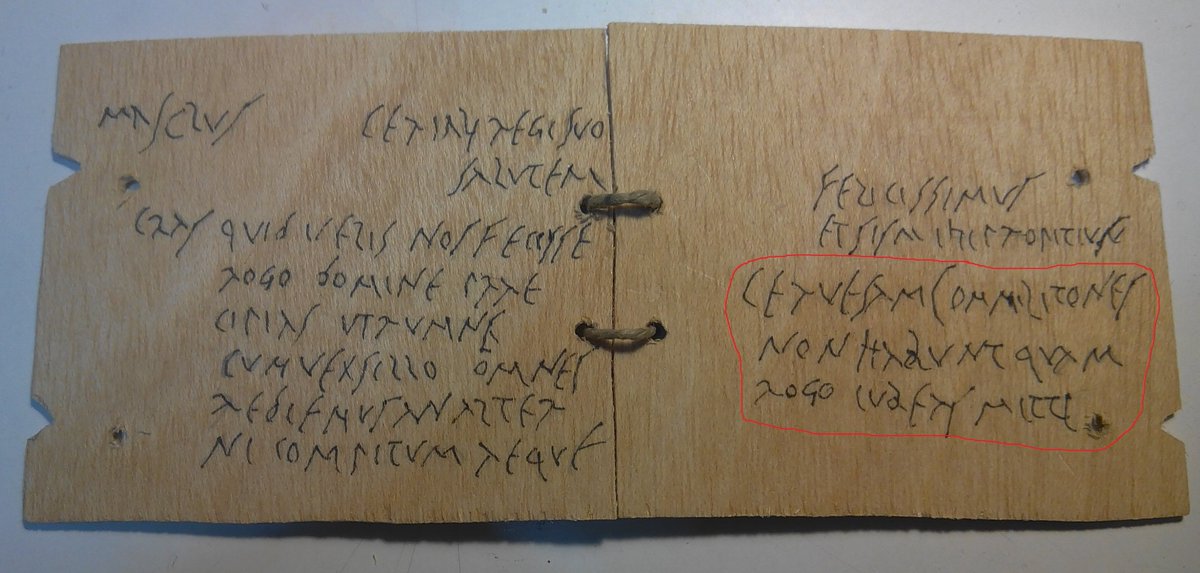 MASCLUS CERIALI REGI SUO
SALUTEM
CRAS QUID VELIS NOS FECISSE
ROGO DOMINE PRAE
CIPIAS UTRUMNE
CUM VEXSILLO OMNES
REDIEMUS AN ALTER
NI COMPITUM AEQUE
FELICISSIMUS
ET SIS MIHI PROPITIUS
CERVESAM COMMILITONES
NON HABUNT QUAM
ROGO IUBEAS MITTI